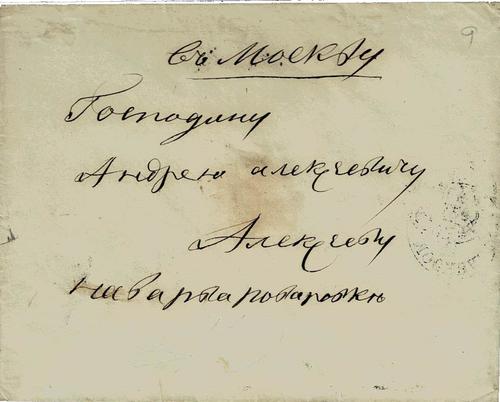 Въ Москву
9
Господину
Андрею алексеевичу
Алексееву
на варварской
МОСКВА